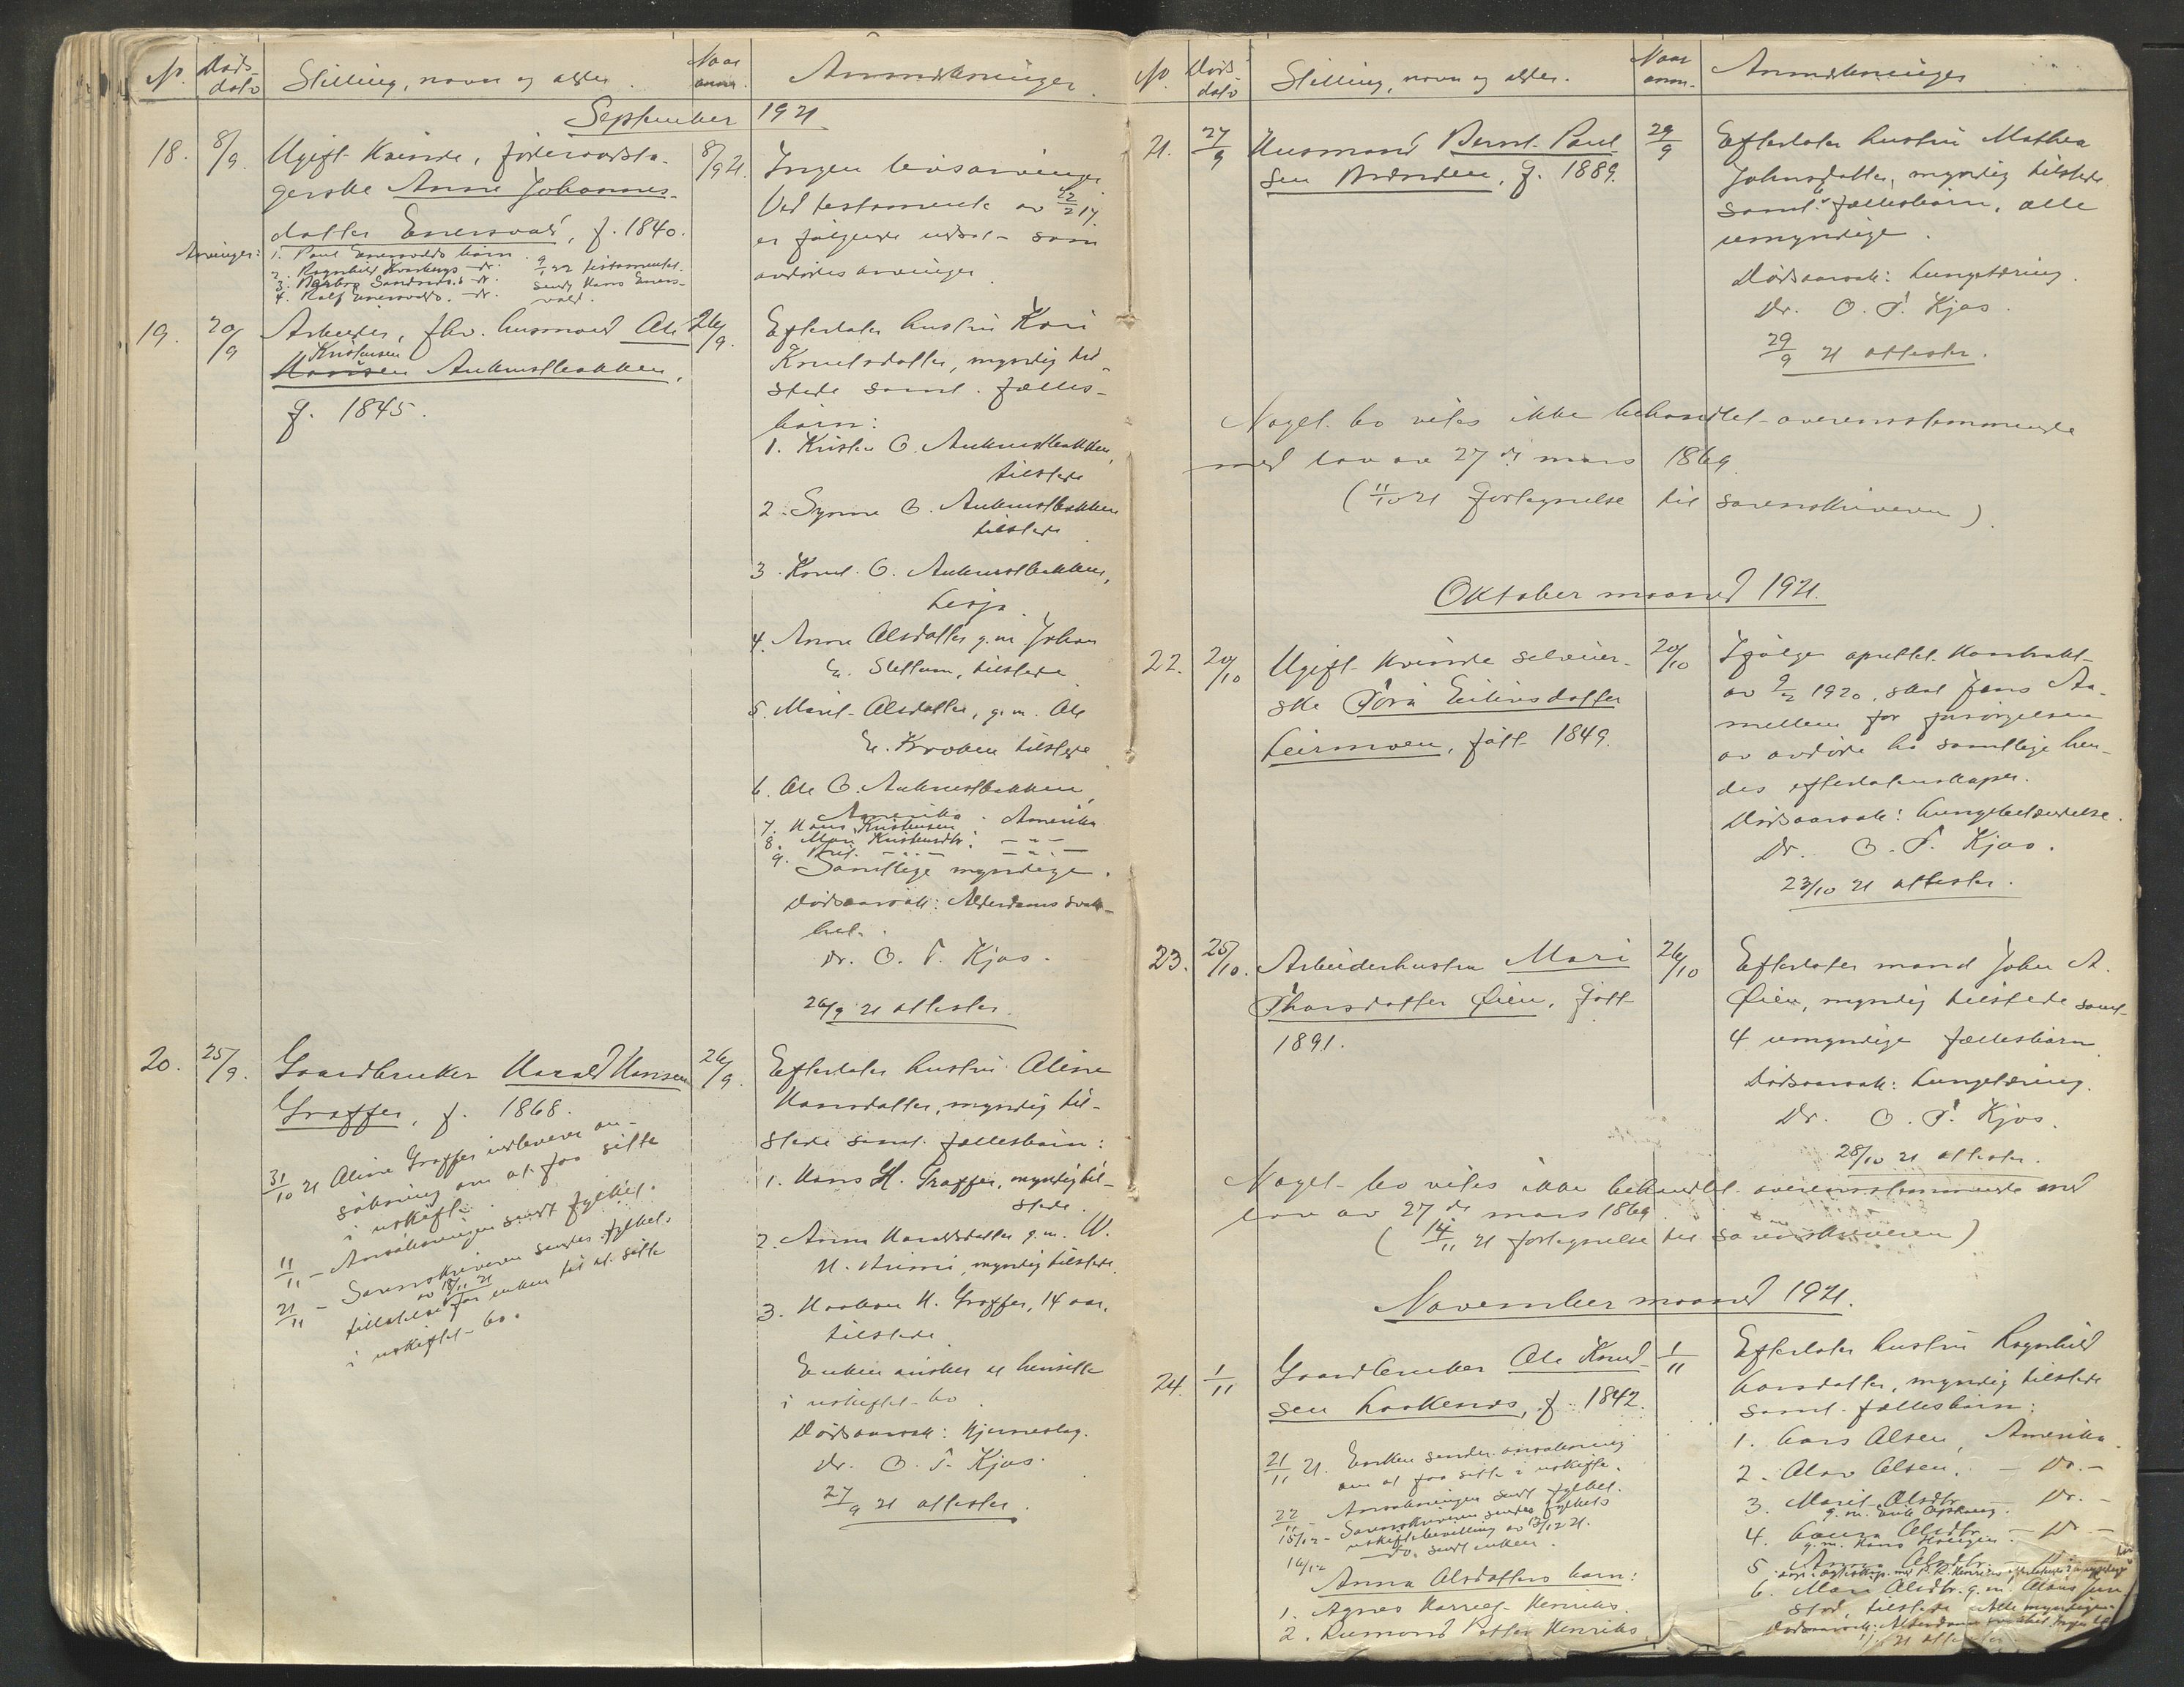 No. Døds-
dato Stilling, navn og alder. Naar
anm. Anmerkninger.
September 1921
18. 8/9. Ugift kvinde, føderaadsta-
gerske Anne Johannes-
datter Enersvold, f. 1840.
Arvinger: 1. Paul Enersvolds børn.
2. Ragnhild Kvarbergs - dr.
3. Sandnes's dr.
4. Rolf Enersvolds. - dr.
9/1 22 testamentet
sendt Hans Eners-
vold.
8/9 21. Ingen livsarvinger
Ved testamente av 22/2 17
er følgende indsat som
avdødes arvinger
19. 20/9 Arbeider, fhv. husmand Ole
Kristensen
Hansen Aukrustbakken,
f. 1845.
26/9. Efterlater hustru Kari
Knutsdatter, myndig til-
stede samt fælles-
børn:
1. Kristen O. Aukrustbakken,
tilstede
2. Synne O. Aukrustbakken
tilstede
3. Knut O. Aukrustbakken,
Lesja
4. Anne Olsdatter g.m. Johan
E. Slettum, tilstede
5. Marit Olsdatter, g.m. Ole
E. Kroken tilstede
6. Ole O. Aukrustbakken,
Amerika
7. Hans Kristensen - Amerika
8. Mari Kristensdtr. - " -
9. - " - - " -
Samtlige myndige.
Dødsaarsak: Alderdomssvak-
het.
Dr. O. T. Kjos.
26/9 21 attester.
20. 25/9. Gaardbruker Harald Hansen
Graffer, f. 1868.
31/10 21 Aline Graffer indleverer an-
søkning om at faa sitte
i uskifte.
11/11 - Ansøkningen sendt fylket.
21/11 - Sorenskriveren sender fylkets
av 18/11 21
tillatelse for enken til at sitte
i uskiftet bo.
26/9. Efterlater hustru Aline
Hansdatter, myndig til-
stede samt fællesbørn:
1. Hans H. Graffer, myndig til-
stede.
2. Anna Haraldsdatter g.m. W.
H. , myndig tilstede.
3. Haakon H. Graffer, 14 aar,
tilstede
Enken ønsker at hensitte
i uskiftet bo
Dødsaarsak: Hjerneslag.
Dr. O. T. Kjos.
27/9 21 attester.
No. Døds-
dato Stilling, navn og alder. Naar
anm. Anmerkninger
21. 27/9 Husmand Bernt Paul-
sen , f. 1889.
29/9 Efterlater hustru Mathea
Johnsdatter, myndig tilstede
samt fællesbørn, alle
umyndige.
Dødsaarsak: Lungetæring.
Dr. O. T. Kjos.
29/9 21 attester.
Noget bo vites ikke behandlet overensstemmende
med lov av 27de mars 1869
(11/10 21 Fortegnelse til sorenskriveren).
Oktober maaned 1921.
22. 20/10 Ugift kvinde selveier-
ske Tora Eilivsdatter
Leirmoen, født 1849.
20/10 Ifølge oprettet kontrakt
av 9/2 1920, skal Jens Aa-
mellem for forsørgelsen
av avdøde ha samtlige hen-
des efterlatenskaper.
Dødsaarsak: Lungebetændelse.
Dr. O. T. Kjos.
23/10 21 attester.
23. 25/10. Arbeiderhustru Mari
Thorsdatter Øien, født
1891.
26/10 Efterlater mand John A.
Øien, myndig tilstede samt
4 umyndige fællesbørn
Dødsaarsak: Lungetæring.
Dr. O. T. Kjos.
28/10 21 attester.
Noget bo vites ikke behandlet overensstemmende med
lov av 27de mars 1869
(14/11 21 fortegnelse til sorenskriveren)
November maaned 1921.
24. 1/11 Gaardbruker Ole Knud-
sen Laokenes, f. 1842.
21/11 21. Enken sender ansøkning
om at faa sitte i uskifte.
22/11 - Ansøkningen sendt fylket.
15/12 - Sorenskriveren sender fylkets
uskiftebevilling av 13/12 21.
16/12 - do. sendt enken.
Anna Olsdatters børn:
1. Agnes Henriks.
2. Henriks.
1/11 Efterlater hustru Ragnhild
Larsdatter, myndig tilstede
samt fællesbørn:
1. Lars Olsen, Amerika.
2. Olav Olsen, - Do. -
3. Marit Olsdtr. - Do. -
g.m. Erik
4. Olsdtr. - Do. -
g.m. Hans
5. Anna Olsdtr.
6. Mari Olsdtr. g.m.
tilstede Alle myndige.
Dødsaarsak: Alderdoms
21 attester